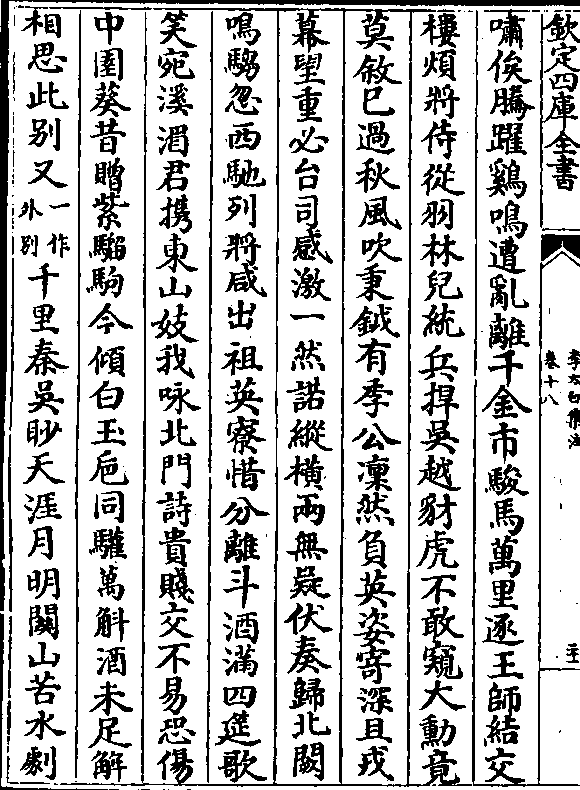 欽定四庫全書
李太白集注
卷十八
嘯俟騰躍鷄鳴遭亂離千金市駿馬萬里逐王師結交
樓煩將侍從羽林兒統兵捍吳越豺虎不敢窺大勳竟
莫敘已過秋風吹秉鉞有季公凜然負英姿寄深且戎
幕望重必台司感激一然諾縱横兩無疑伏奏歸北闕
鳴騶忽西馳列將咸出祖英寮惜分離斗酒滿四筵歌
笑宛溪湄君携東山妓我咏北門詩貴賤交不易恐傷
中園葵昔贈紫騮駒今傾白玉巵同驩萬斛酒未足解
相思此别又一作外别千里秦吳眇天涯月明關山苦水劇